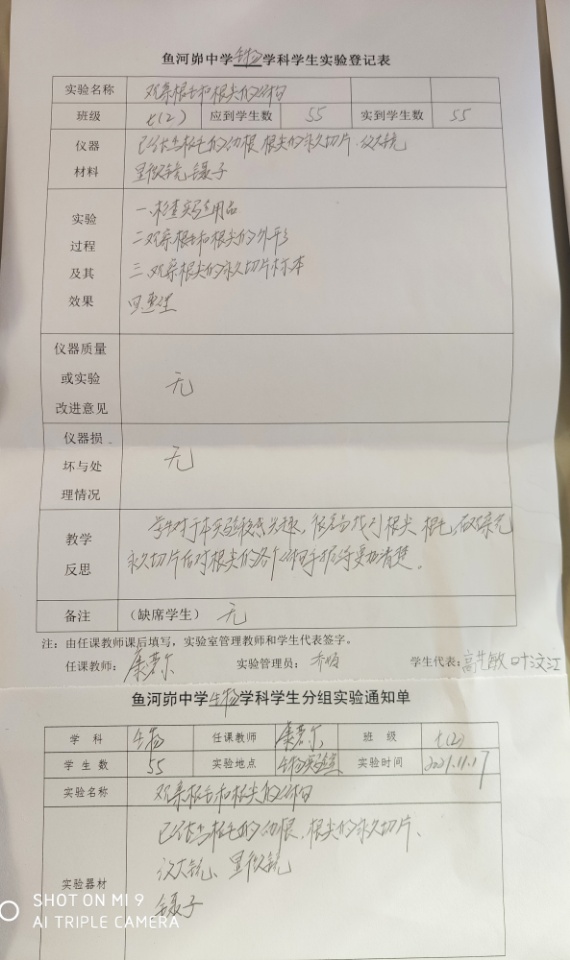 鱼河峁中学生物学科学生实验登记表
实验名称 观察根毛和根尖的结构
班级 七(2) 应到学生数 55 实到学生数 55
仪器 已长出根毛的幼根、根尖的永久切片、放大镜
材料 显微镜、镊子
实验 一.检查实验用品
过程 二.观察根毛和根尖的外形
及其 三.观察根尖的永久切片标本
效果 四.
仪器质量
或实验 无
改进意见
仪器损
坏与处 无
理情况
教学 学生对于本实验较感兴趣,很容易找到根尖、根毛,
反思 永久切片后对根尖的各个结构掌握得更加清楚。
备注 (缺席学生) 无
注：由任课教师课后填写，实验室管理教师和学生代表签字。
任课教师: 实验管理员: 学生代表: 叶汶江
鱼河峁中学生物学科学生分组实验通知单
学 科 生物 任课教师 班 级 七(2)
学 生 数 55 实验地点 生物实验室 实验时间 2021.11.17
实验名称 观察根毛和根尖的结构
已长出根毛的幼根、根尖的永久切片、
放大镜、显微镜
实验器材 镊子
SHOT ON MI 9
AI TRIPLE CAMERA